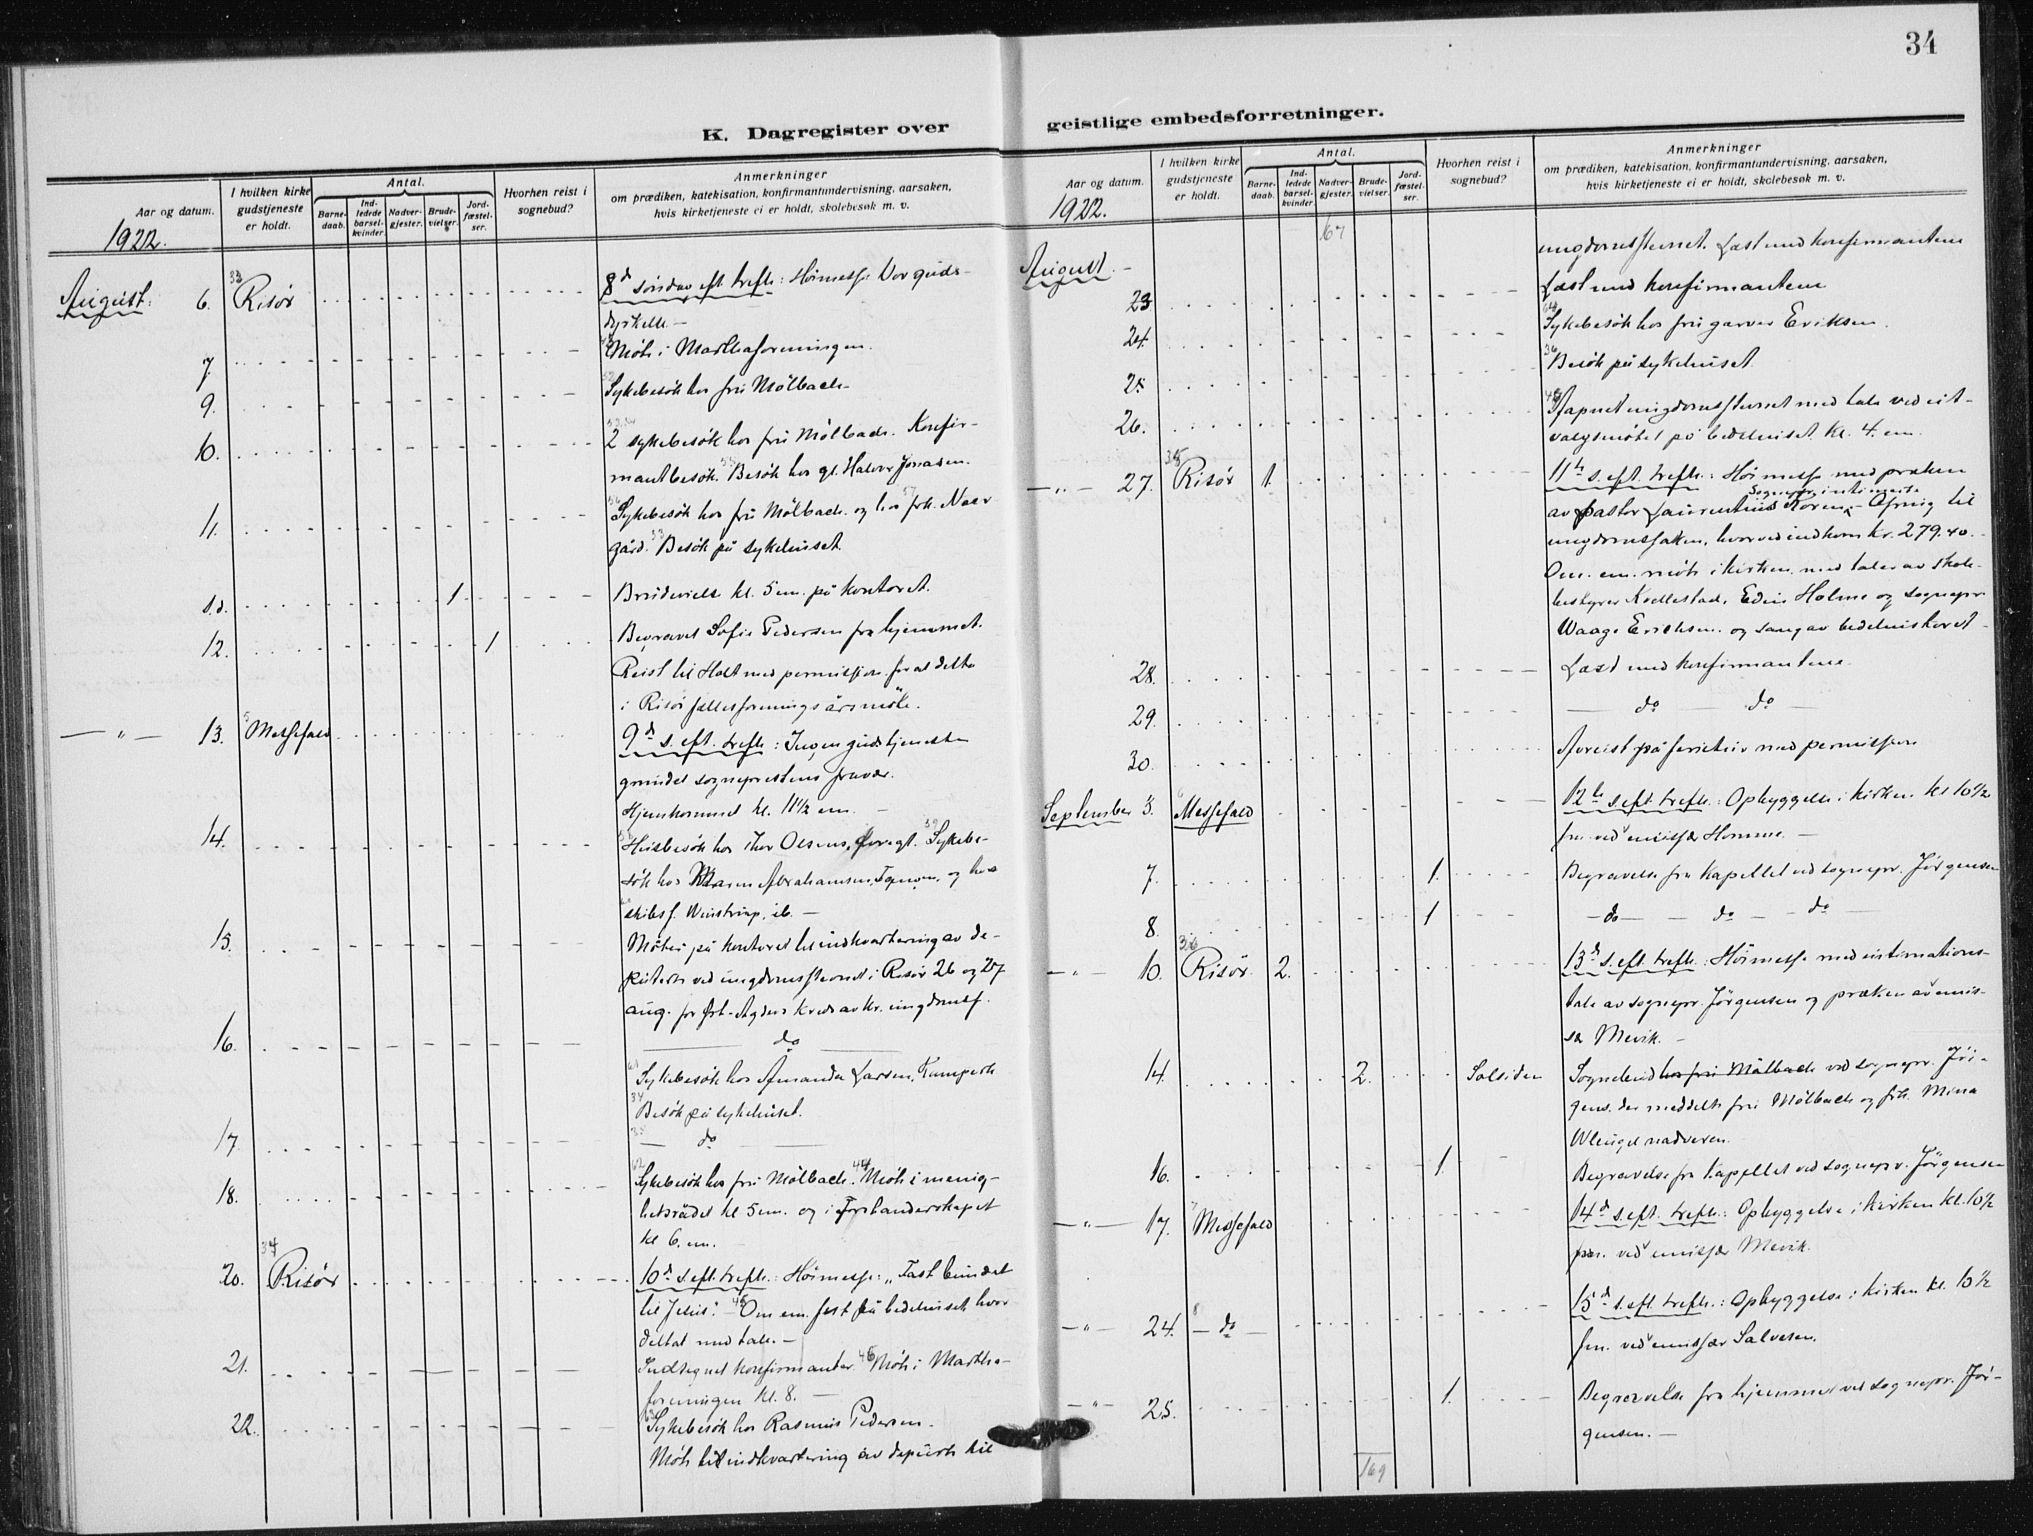 34
K. Dagregister over geistlige embedsforretninger.
Aar og datum.
I hvilken kirke gudstjeneste er holdt.
Antal.
Barne-daab.
Ind-ledede barsel-kvinder.
Nadver-gjester.
Brude-vielser.
Jord-fæstel-ser.
Hvorhen reist i sognebud?
Anmerkninger
om prædiken, katekisation, konfirmantundervisning, aarsaken,
hvis kirketjeneste ei er holdt, skolebesøk m. v.
1922.
August. 6. 33 Risør 8d søndav eft. trefh: Høimesse Vor guds-
dyrkelse. -
7. Møte i Marthaforeningen.
9. Sykebesøk hos fru Mølbach.
10. 2 sykebesøk hos fru Mølbach. Konfir-
mantbesøk. Besøk hos gl. Halvor Jonasen.
11. Sykebesøk hos fru Mølbach og hos frk. Neer-
gård. Besøk på sykehuset.
s.d. 1 Brudevielse kl. 5 em. på kontoret.
12. 1 Begravet Sofie Pedersen fra hjemmet.
Reist til Holt med permission for at delta
i Risør fællesforenings årsmøte.
— " — 13. 5 Messefald 9d s. eft. trefh: Ingen gudstjeneste
grundet sogneprestens fravær.
Hjemkommet kl. 11 1/2 em. —
14. Husbesøk hos Thor Olsens, 39 Sykebe-
søk hos Maren Abrahamsen, og hos
skibsf. Winstrup, ib. —
15. Møte på kontoret til indkvartering av de-
puterte ved ungdomsstevnet i Risør 26 og 27
aug. for Øst-Agder kreds av kr. ungdomsf.
16. — do —
61 Sykebesøk hos Amanda Larsen, Kamperh.
34 Besøk på sykehuset.
17. 35 — do —
18. 62 Sykebesøk hos fru Mølbach. 44 Møte i menig-
hetsrådet kl 5 em. og i Forstanderskapet
kl 6. em.
20. 34 Risør 10d s. eft. trefh.: Høimesse: „Fast bundet
til Jesus". 45 Om em. fest på bedehuset, hvor
deltat med tale. —
21. Indtegnet konfirmanter. 46 Møte i Martha-
foreningen kl. 8. —
22. Sykebesøk hos Rasmus Pedersen.
Møte til indkvartering av deputerte til
Aar og datum.
I hvilken kirke gudstjeneste er holdt.
Antal.
Barne-daab.
Ind-ledede barsel-kvinder.
Nadver-gjester.
Brude-vielser.
Jord-fæstel-ser.
Hvorhen reist i sognebud?
Anmerkninger
om prædiken, katekisation, konfirmantundervisning, aarsaken,
hvis kirketjeneste ei er holdt, skolebesøk m. v.
1922.
67
August. — ungdomsstevnet. Læst med konfirmantene
23. Læst med konfirmantene
24. 64 Sykebesøk hos fru garver Eriksen.
25. 36 Besøk på sykehuset.
26. Åpnet ungdomsstevnet med tale ved ut-
valgsmøtet på bedehuset kl. 4. em.
— " — 27. 35 Risør 1. 11te s. eft. trefh.: Høimesse med præken
av pastor Laurentius Koren. — Ofring til
ungdomssaken, hvorved indkom kr. 279.40. -
Om em. møte i kirken med taler av skole-
bestyrer Kodlestad, Edin Holme og sognepr.
Waage Erichsen og sang av bedehuskoret
28. Læst med konfirmantene.
29. — do — do —
30. Avreist på ferietur med permission
September 3. 6 Messefald 12te s. eft. trefh.: Opbyggelse i kirken kl 10 1/2
fm. ved emissær Homme. —
7. 1. Begravelse fra kapellet ved sognepr. Jørgensen
8. 1 — do — do — do —
— " — 10. 36 Risør 2. 13d s. eft. trefh.: Høimesse med intimations-
tale av sognepr. Jørgensen og præken av emis-
sær Mevik. —
14. 2. Solsiden Sognebud hos fru Mølbach ved sognepr. Jør-
gens. der meddelte fru Mølbach og frk. Mina
nadveren.
16. 1. Begravelse fra kapellet ved sognepr. Jørgensen
— " — 17. 7 Messefald 14d s. eft. trefh.: Opbyggelse i kirken kl. 10 1/2
fm. ved emissær Mevik.
— " — 24. 8 — do — 15d s. eft. trefh.: Opbyggelse i kirken kl. 10 1/2
fm. ved emissær Salvesen.
— " — 25. 1. Begravelse fra hjemmet ved sognepr. Jør-
gensen. —
169